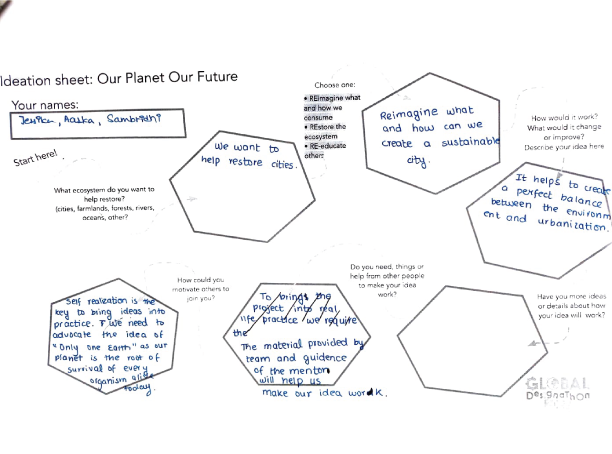 Ideation sheet: Our Planet Our Future
Your names:
Jesika, Aaska, Sambridhi
Start here!
What ecosystem do you want to
help restore?
(cities, farmlands, forests, rivers,
oceans, other?
We want to
help restore cities.
Choose one:
• REimagine what
and how we
consume
• REstore the
ecosystem
• RE-educate
others
Reimagine what
and how can we
create a sustainable
city.
How would it work?
What would it change
or improve?
Describe your idea here
It helps to create
a perfect balance
between the environm
ent and urbanization.
Have you more ideas
or details about how
your idea will work?
Do you need, things or
help from other people
to make your idea
work?
To brings the
project into real
life practice we require
the
The material provided by
team and guidance
of the mentor
will help us
make our idea work.
How could you
motivate others to
join you?
Self realization is the
key to bring ideas into
practice. We need to
advocate the idea of
"Only one Earth" as our
planet is the root of
survival of every
organism alive
today.
GLOBAL
Designathon